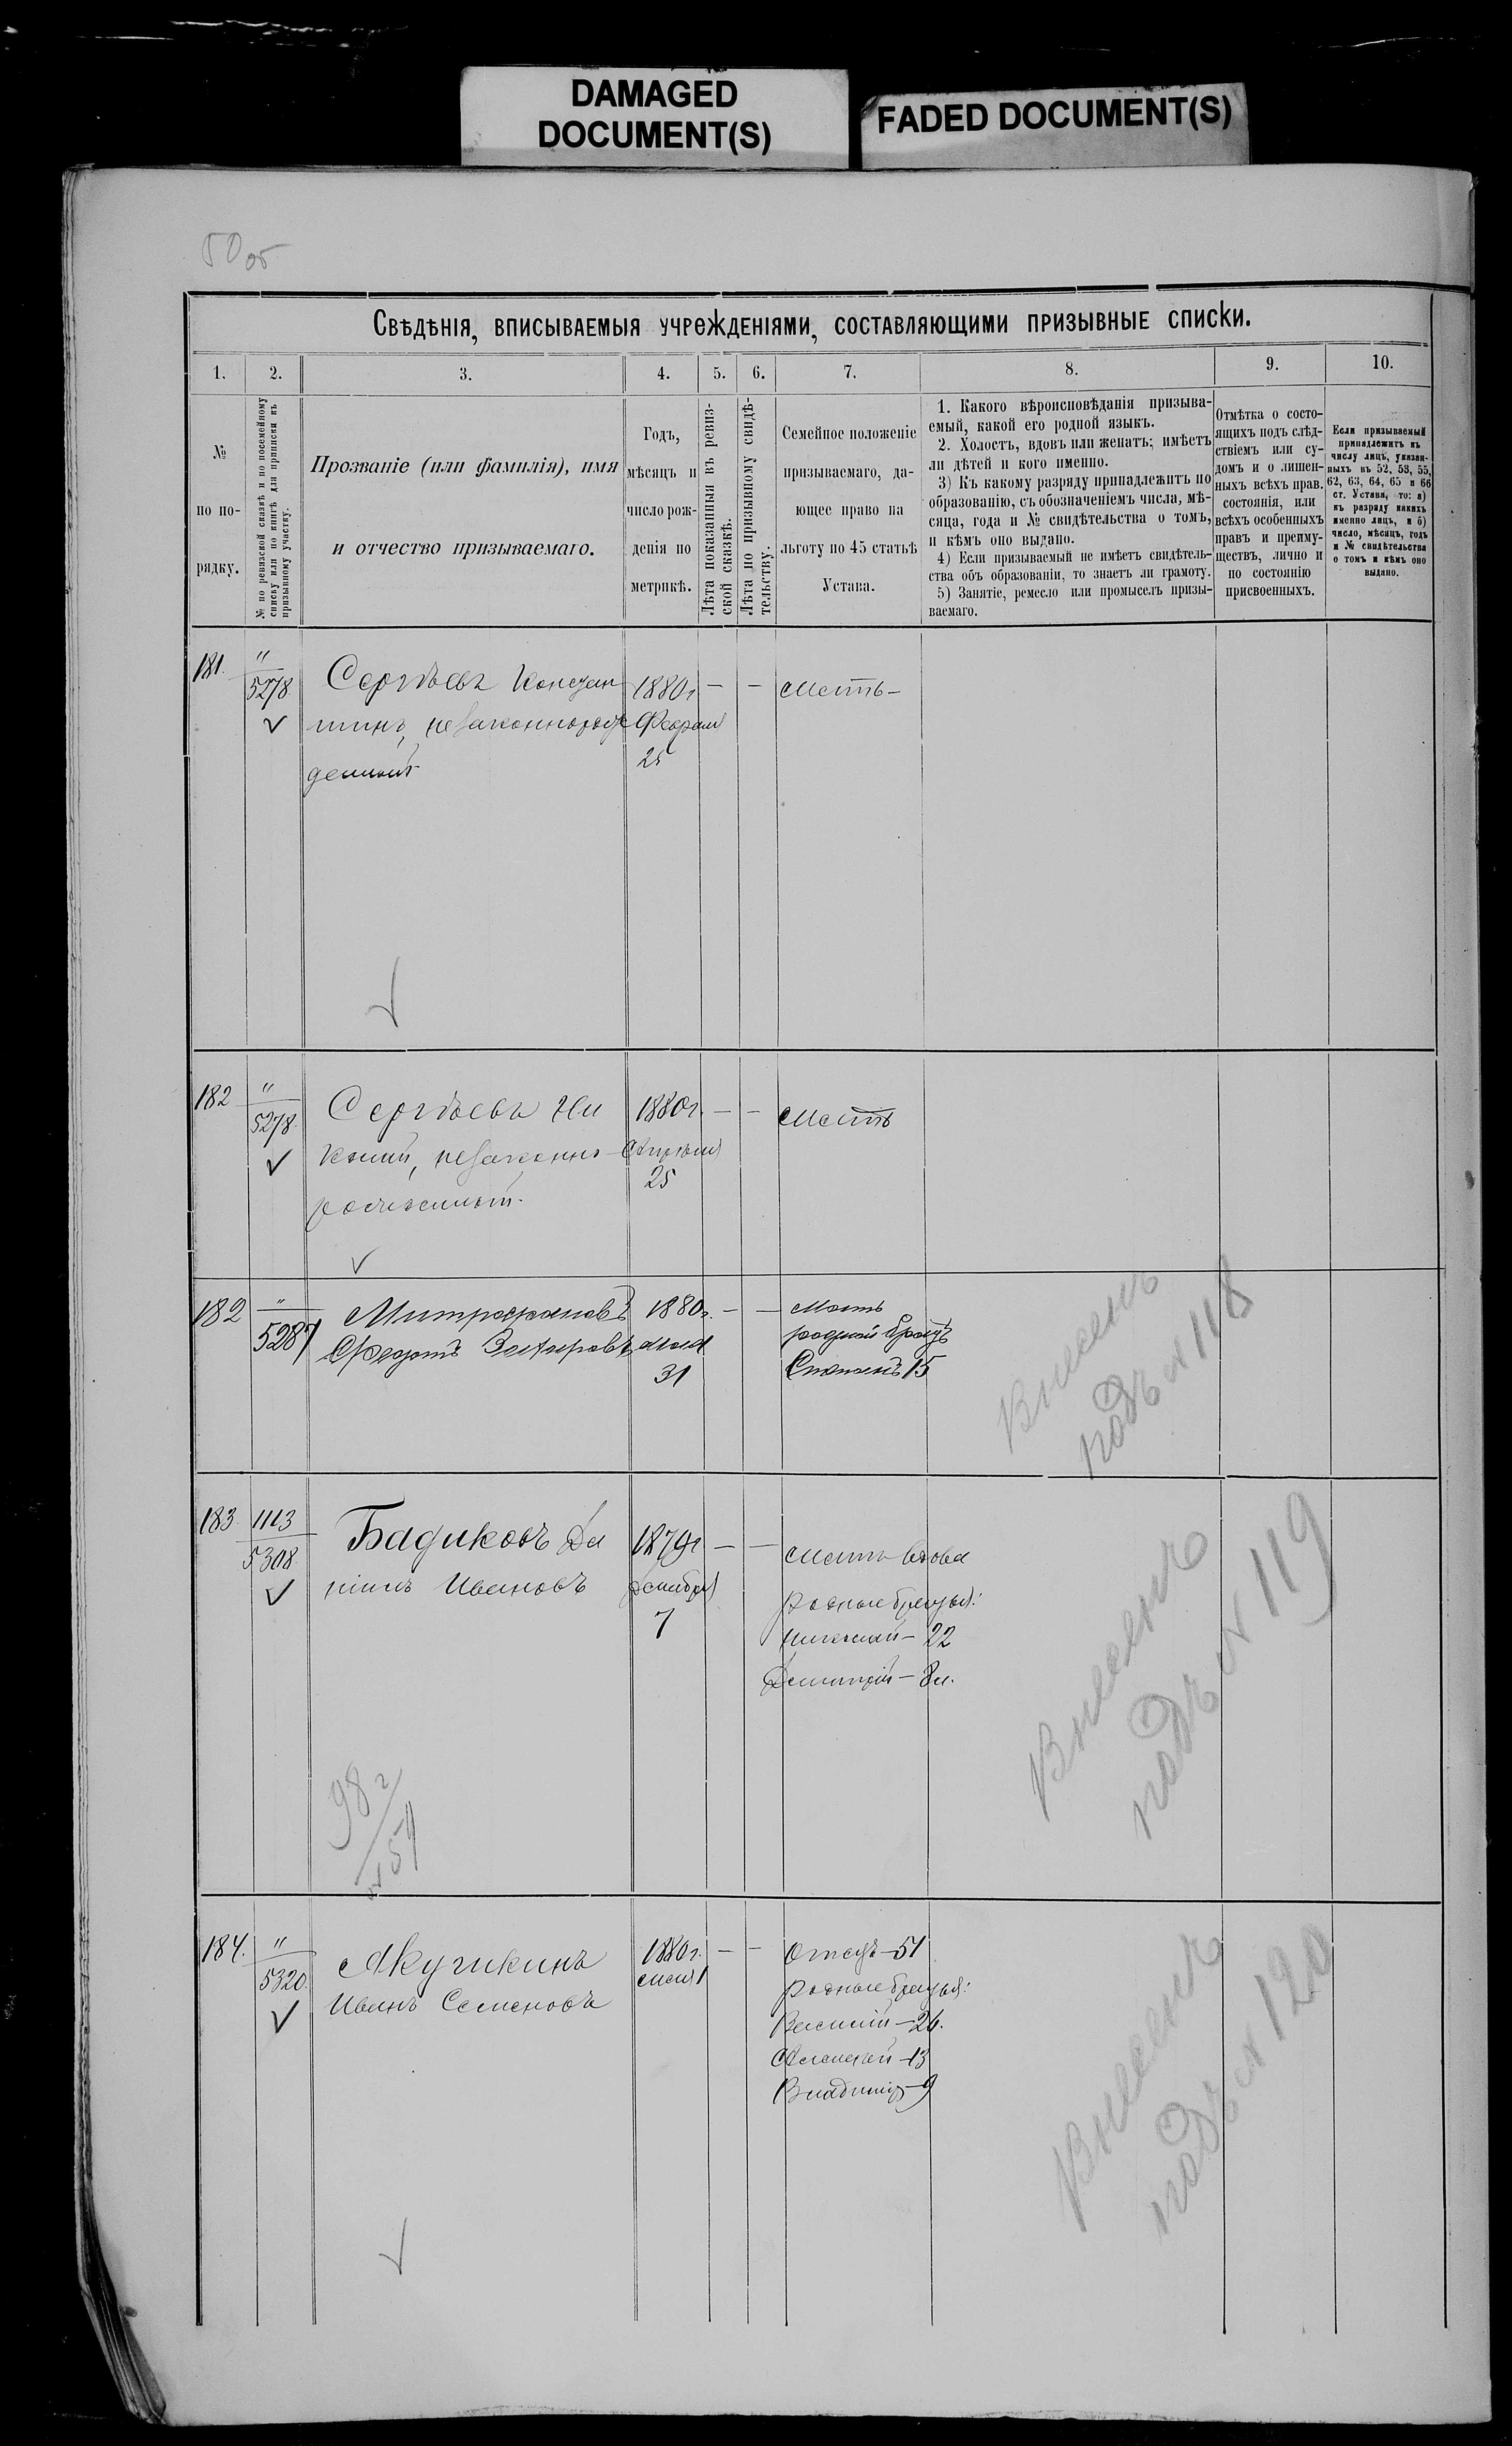 DAMAGED
DOCUMENT(S)
FADED DOCUMENT(S)
50 об
Свѣдѣнія, вписываемыя учрежденіями, составляющими призывные списки.
1. 2. 3. 4. 5. 6. 7. 8. 9. 10.
№
по по-
рядку.
№ по ревизской сказкѣ и по посемейному
списку или по книгѣ для приписки къ
призывному участку.
Прозваніе (или фамилія), имя
и отчество призываемаго.
Годъ,
мѣсяцъ и
число рож-
денія по
метрикѣ.
Лѣта показанныя въ ревиз-
ской сказкѣ.
Лѣта по призывному свидѣ-
тельству.
Семейное положеніе
призываемаго, да-
ющее право на
льготу по 45 статьѣ
Устава.
1. Какого вѣроисповѣданія призыва-
емый, какой его родной языкъ.
2. Холостъ, вдовъ или женатъ; имѣетъ
ли дѣтей и кого именно.
3) Къ какому разряду принадлежитъ по
образованію, съ обозначеніемъ числа, мѣ-
сяца, года и № свидѣтельства о томъ,
и кѣмъ оно выдано.
4) Если призываемый не имѣетъ свидѣтель-
ства объ образованіи, то знаетъ ли грамоту.
5) Занятіе, ремесло или промыселъ призы-
ваемаго.
Отмѣтка о состо-
ящихъ подъ слѣд-
ствіемъ или су-
домъ и о лишен-
ныхъ всѣхъ прав.
состоянія, или
всѣхъ особенныхъ
правъ и преиму-
ществъ, лично и
по состоянію
присвоенныхъ.
Если призываемый
принадлежитъ къ
числу лицъ, указан-
ныхъ въ 52, 53, 55,
62, 63, 64, 65 и 66
ст. Устава, то: а)
къ разряду какихъ
именно лицъ, и б)
число, мѣсяцъ, годъ
и № свидѣтельства
о томъ и кѣмъ оно
выдано.
181. " Сергѣевъ Констан 1880г — — Мать —
5278. тинъ, незаконнорож Февраля
денный 25
182 " Сергѣевъ Ни 1880г. — — Мать
5278. колай, незаконно Апрѣля
рожденный. 25
182 " Митрофановъ 1880г. — — Мать
5287 Федотъ Захаровъ мая родной братъ
31 Степанъ 15
Внесенъ
подъ № 118
183. 1113 Бадиковъ Да 1879г — — Мать вдова
5308. ніилъ Ивановъ Декабря Родные братья:
7 Николай — 22
Дмитрій — 8 л.
Внесенъ
подъ № 119
98 г
№ 59
184. " Акучикинъ 1880г. — — Отецъ — 51
5320. Иванъ Семеновъ мая 1 Родные братья:
Василій — 26.
Алексѣй — 13
Владиміръ — 9
Внесенъ
подъ № 120